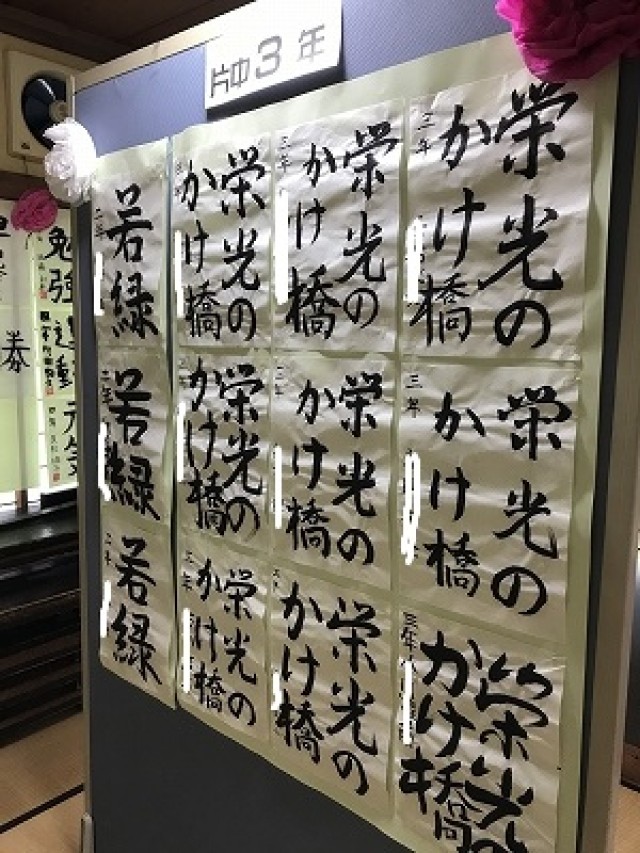 片中3年
栄光の
かけ橋
三年
栄光の
かけ橋
三年
栄光の
かけ橋
三年
若緑
二年
栄光の
かけ橋
三年
栄光の
かけ橋
三年
栄光の
かけ橋
三年
若緑
二年
栄光の
かけ橋
三年
栄光の
かけ橋
栄光の
かけ橋
三年
若緑
二年
勉強
運動
元気